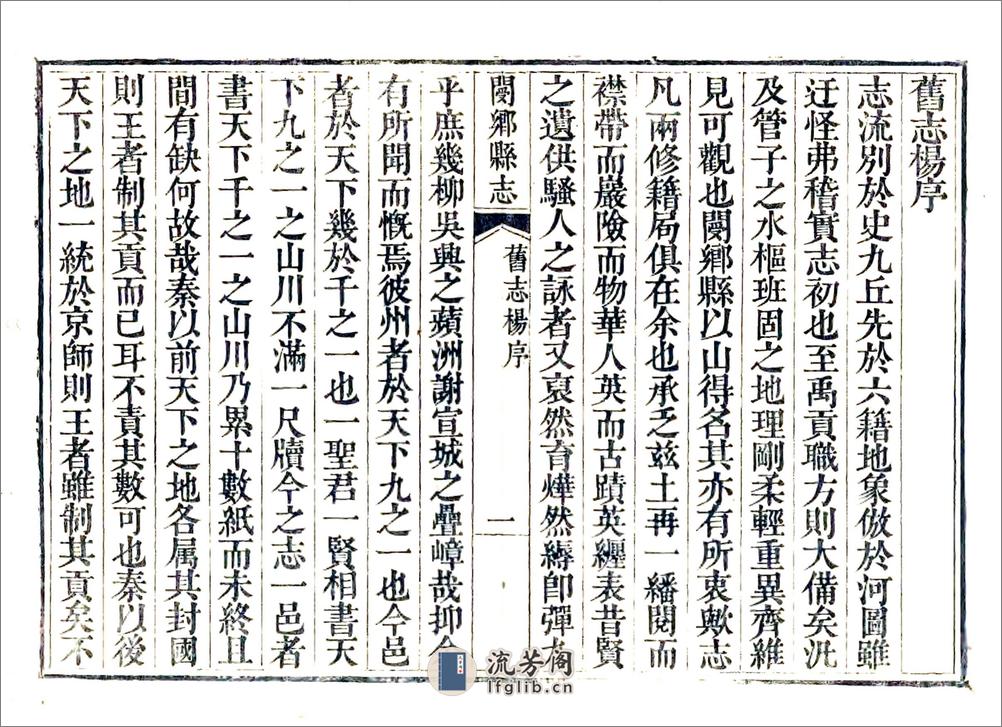 舊志楊序
志流別於史九丘先於六籍地象倣於河圖雖
迂怪弗稽實志初也至禹貢職方則大備矣況
及管子之水樞班固之地理剛柔輕重異齊維
見可觀也閿鄉縣以山得名其亦有所衷歟志
凡兩修籍局俱在余也承乏玆土再一繙閱而
襟帶而巖險而物華人英而古蹟英纏表昔賢
之遺供騷人之詠者又裒然育燁然縟卽彈丸
乎庶幾柳吳興之蘋洲謝宣城之疊嶂哉抑余
有所聞而慨焉彼州者於天下九之一也今邑
者於天下幾於千之一也一聖君一賢相書天
下九之一之山川不滿一尺牘今之志一邑者
書天下千之一之山川乃累十數紙而未終且
間有缺何故哉秦以前天下之地各属其封國
則王者制其貢而已耳不責其數可也秦以後
天下之地一統於京師則王者雖制其貢矣不
閿鄉縣志
舊志楊序
一
流芳阁
lfglib.cn